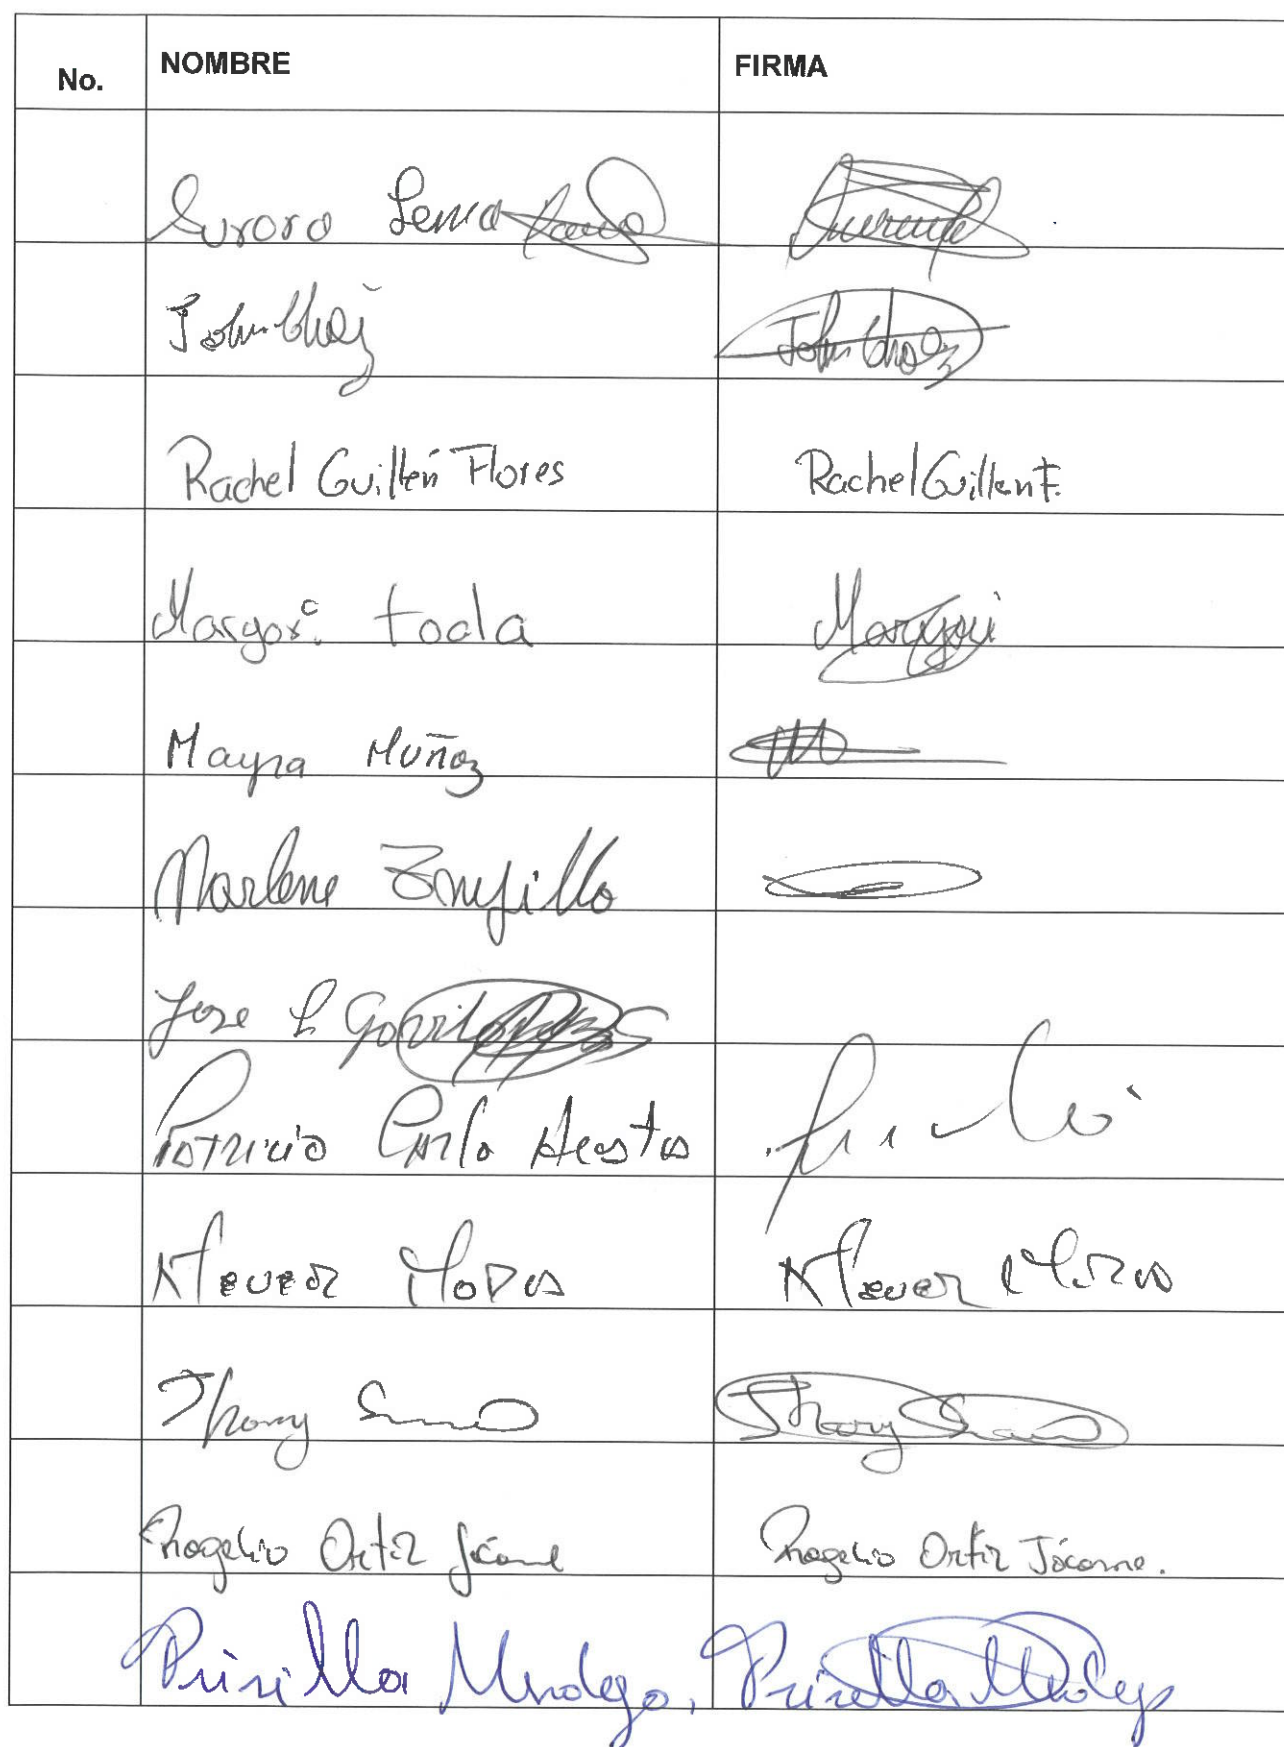 No. NOMBRE FIRMA
Aurora Lema
John Choez John Choez
Rachel Guillén Flores Rachel Guillen F.
Margori toala Margori
Mayra Muñoz
Marlene
Jose L
Patricio Carlo Acosta
Klever Mora Klever Mora
Thomy Thomy
Rogelio Ortiz Jácome Rogelio Ortiz Jácome.
Prisilla Prisilla